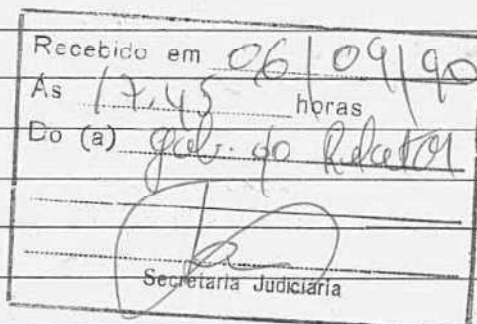 Recebido em 06/09/90
Às 17,45 horas
Do (a) gab. do Relator
Secretaria Judiciária